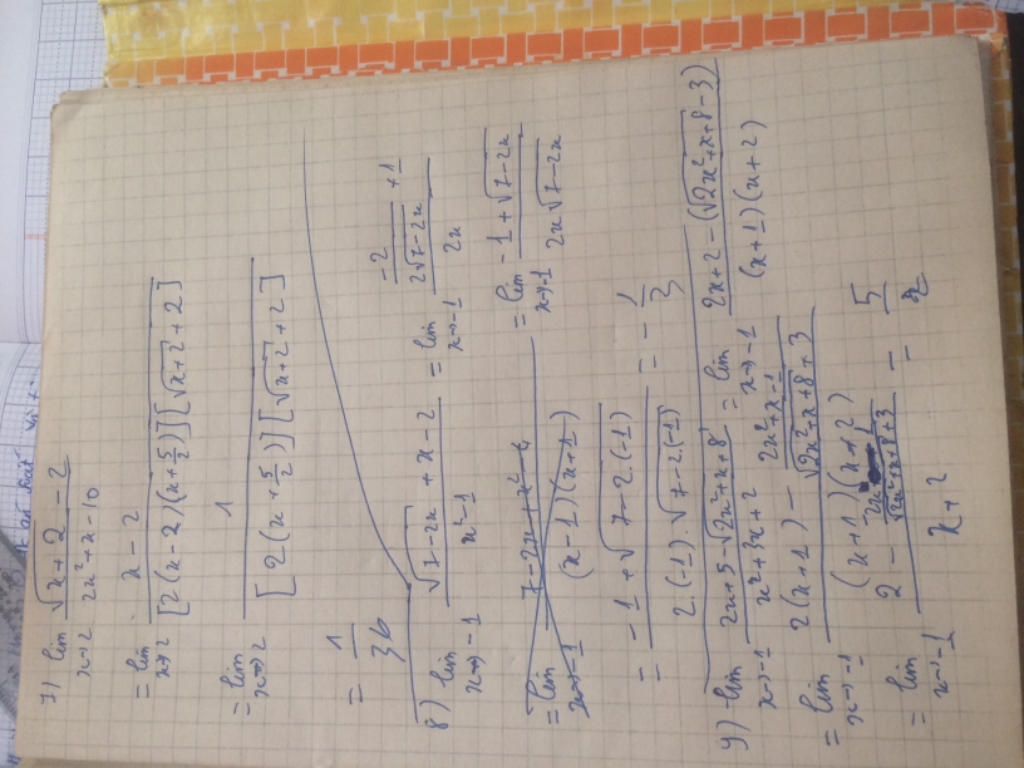 7) lim x→2 (√(x+2) - 2)/(2x² + x - 10)
= lim x→2 (x - 2)/([2(x-2)(x+5/2)][√(x+2) + 2])
= lim x→2 1/([2(x+5/2)][√(x+2) + 2])
= 1/36
8) lim x→-1 (√(7-2x) + x - 2)/(x² - 1) = lim x→-1 (-2/(2√(7-2x)) + 1)/(2x)
= lim x→-1 (7-2x+x²-4)/((x-1)(x+1)) = lim x→-1 (-1+√(7-2x))/(2x√(7-2x))
= (-1+√(7-2.(-1)))/(2.(-1).√(7-2.(-1))) = -1/3
9) lim x→-1 (2x+5-√(2x²+x+8))/(x²+3x+2) = lim x→-1 (2x+2-(√(2x²+x+8)-3))/((x+1)(x+2))
= lim x→-1 (2(x+1) - (2x²+x-1)/(√(2x²+x+8)+3))/((x+1)(x+2))
= lim x→-1 (2 - (2x-1)/(√(2x²+x+8)+3))/(x+2) = 5/2